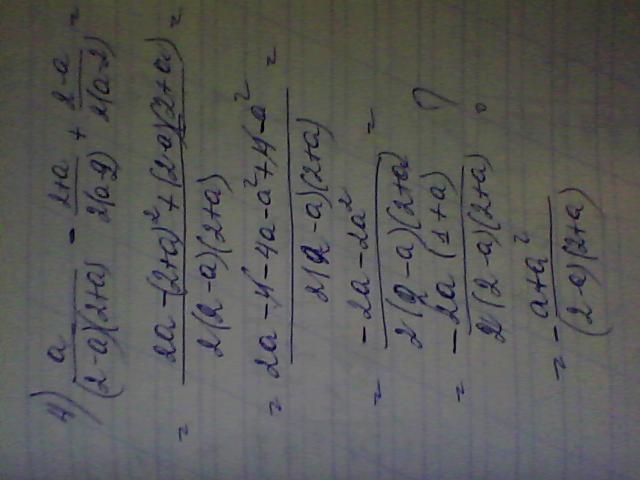 4) a/((2-a)(2+a)) - (2+a)/(2(a-2)) + (2-a)/(2(a-2)) =
= (2a-(2+a)²+(2-a)(2+a))/(2(2-a)(2+a)) =
= (2a-4-4a-a²+4-a²)/(2(2-a)(2+a)) =
= (-2a-2a²)/(2(2-a)(2+a)) =
= (-2a(1+a))/(2(2-a)(2+a)) ?
= -(a+a²)/((2-a)(2+a))